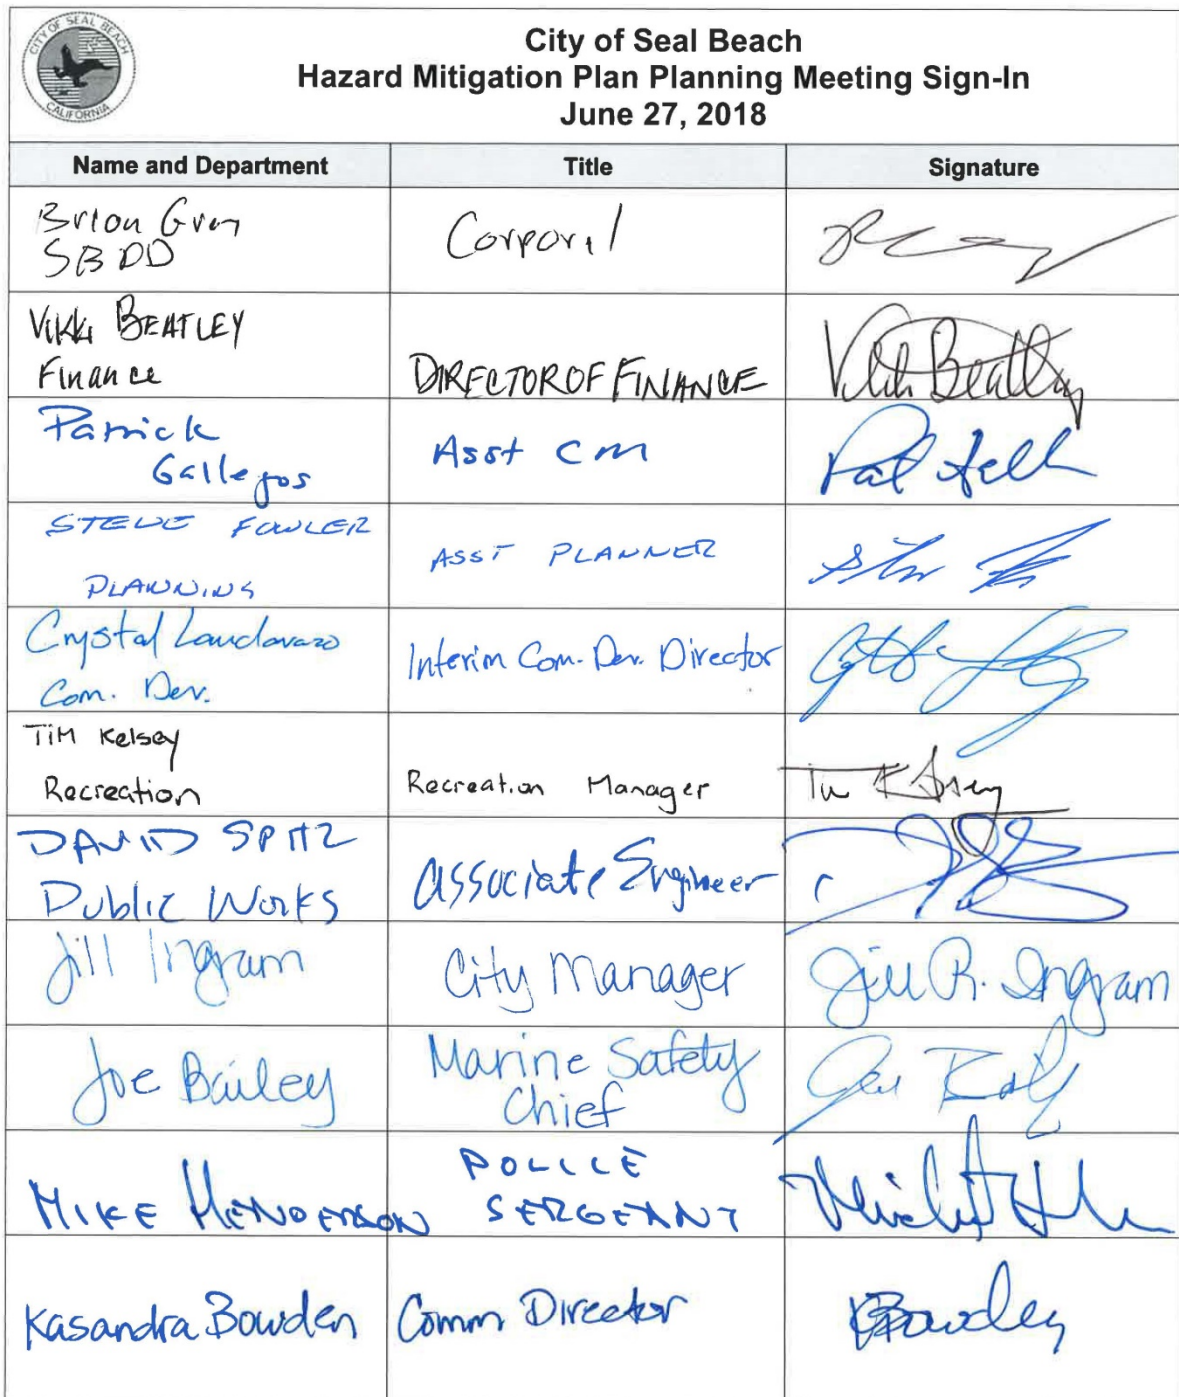 CITY OF SEAL BEACH
CALIFORNIA
City of Seal Beach
Hazard Mitigation Plan Planning Meeting Sign-In
June 27, 2018
Name and Department Title Signature
Brian Gray
SBPD
Corporal
Vikki BEATLEY
Finance
DIRECTOR OF FINANCE
Vikki Beatley
Patrick
Gallegos
Asst CM
STEVE FOWLER
PLANNING
ASST PLANNER
Crystal Landavazo
Com. Dev.
Interim Com. Dev. Director
TiM Kelsey
Recreation
Recreation Manager
Tim Kelsey
DAVID SPITZ
Public Works
Associate Engineer
Jill Ingram
City Manager
Jill R. Ingram
Joe Bailey
Marine Safety
Chief
MIKE HENDERSON
POLICE
SERGEANT
Kasandra Bowden
Comm Director
KBowden